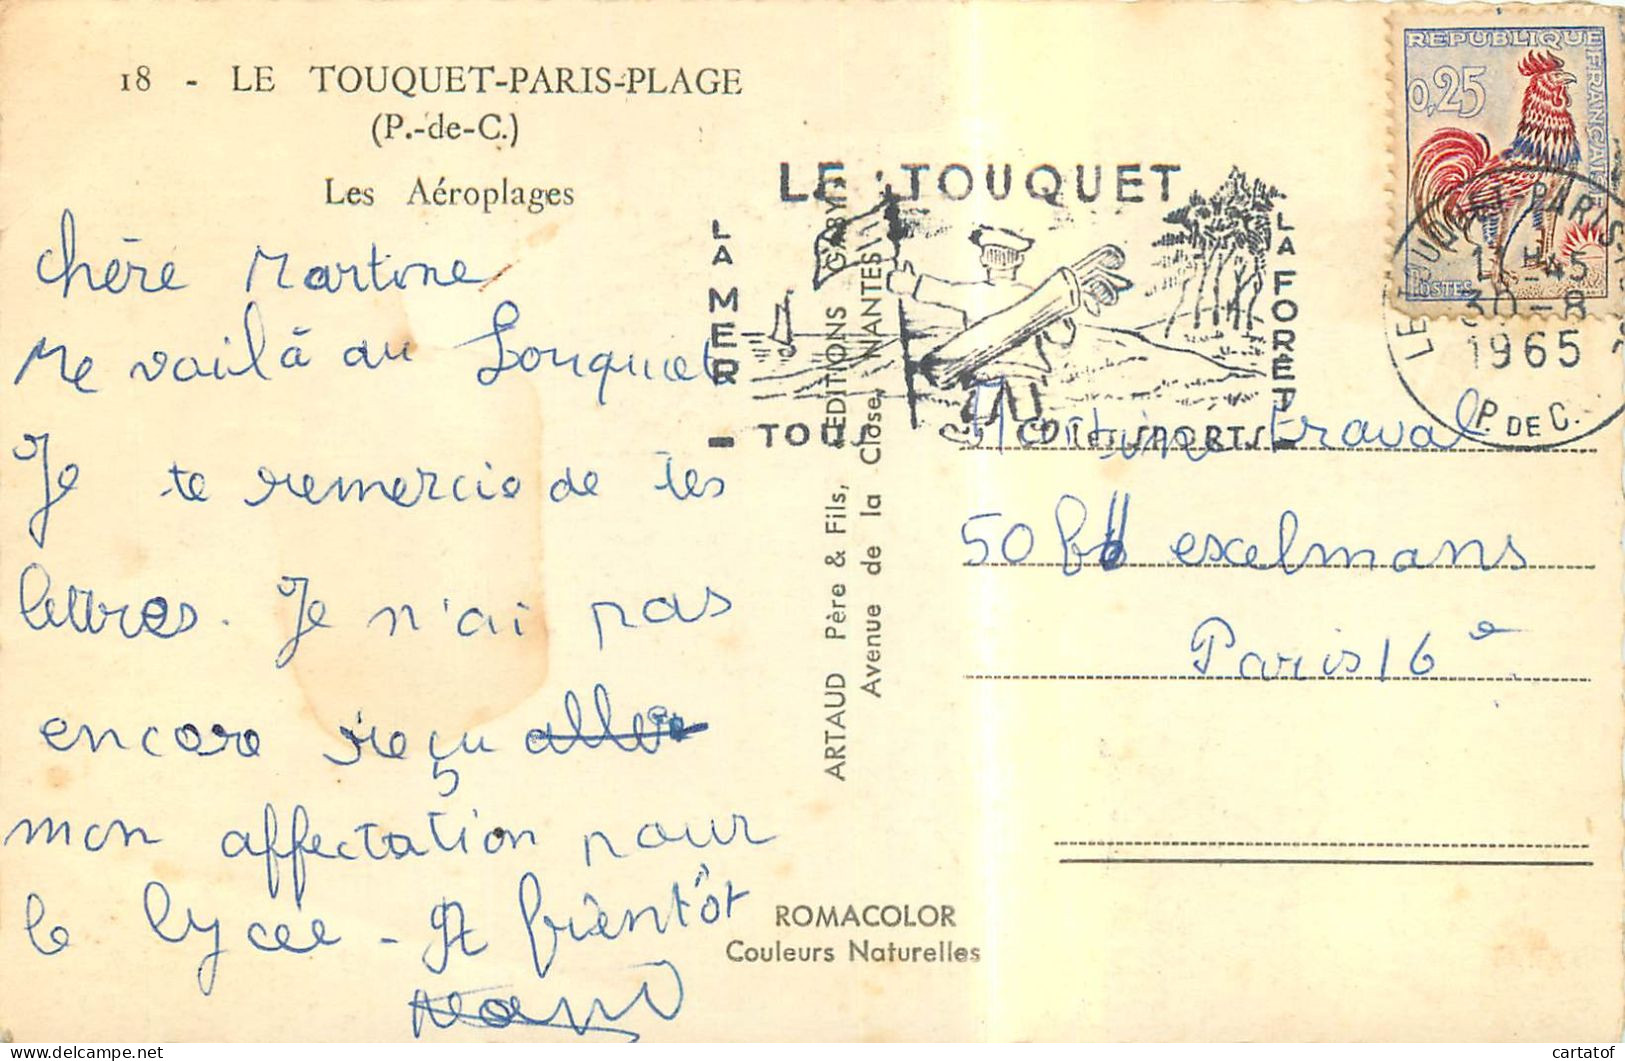 18 - LE TOUQUET-PARIS-PLAGE
(P.-de-C.)
Les Aéroplages
chère Martine
Me voilà au Touquet
Je te remercie de tes
lettres. Je n'ai pas
encore reçu
mon affectation pour
le lycée - A bientôt
ARTAUD Père & Fils, EDITIONS GABY
Avenue de la Close, NANTES
ROMACOLOR
Couleurs Naturelles
LE TOUQUET
LA MER
LA FORET
TOUS les SPORTS
REPUBLIQUE FRANÇAISE
0,25
POSTES
LE TOUQUET-PARIS-PLAGE
17H-45
30-8
1965
P. DE C.
Martine Fraval
50 bd exelmans
Paris 16e
cartatof